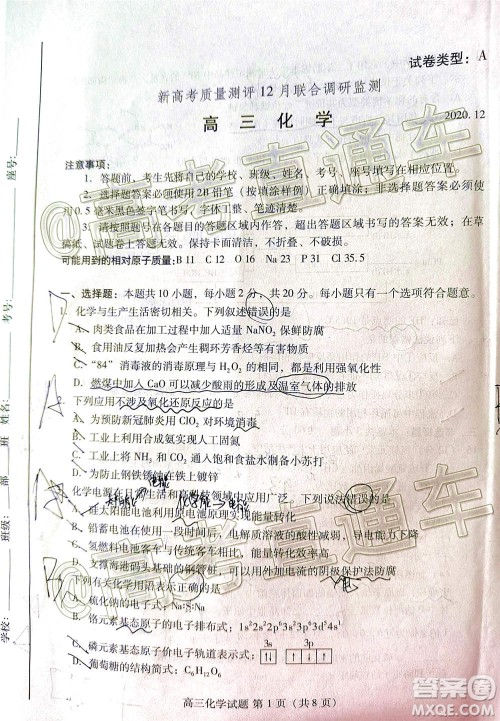 试卷类型：A
新高考质量测评12月联合调研监测
高三化学
2020.12
注意事项：
1. 答题前，考生先将自己的学校、班级、姓名、考号、座号填写在相应位置。
2. 选择题答案必须使用2B铅笔（按填涂样例）正确填涂；非选择题答案必须使
用0.5毫米黑色签字笔书写，字体工整、笔迹清楚。
3. 请按照题号在各题目的答题区域内作答，超出答题区域书写的答案无效；在草
稿纸、试题卷上答题无效。保持卡面清洁，不折叠、不破损。
可能用到的相对原子质量：B 11 C 12 O 16 Na 23 P 31 Cl 35.5
一、选择题：本题共10小题，每小题2分，共20分。每小题只有一个选项符合题意。
1. 化学与生产生活密切相关。下列叙述错误的是
A. 肉类食品在加工时可加入适量NaNO₂保鲜防腐
B. 食用油反复加热会产生稠环芳香烃等有害物质
C. “84”消毒液的消毒原理与H₂O₂相同，都是利用强氧化性
D. 燃煤中加入CaO可以减少酸雨的形成及温室气体的排放
2. 下列应用不涉及氧化还原反应的是
A. 为预防新冠病毒用ClO₂对环境消毒
B. 工业上利用合成氨实现人工固氮
C. 工业上将NH₃和CO₂通入饱和食盐水制备小苏打
D. 为防止钢铁锈蚀在铁上镀锌
3. 化学电源在日常生活和高科技领域中应用广泛。下列说法错误的是
A. 硅太阳能电池利用原电池原理实现能量转化
B. 铅蓄电池在放电过程中，负极质量增大，导电能力减小
C. 氢燃料电池客车与传统动力客车相比，实现了能量高效转化
D. 支撑海港码头基础的钢管桩，可以用外加电流的阴极保护法防腐
4. 下列有关化学用语表示正确的是
A. 硫化钠的电子式：Na:S:Na
B. 铬元素基态原子的电子排布式：1s²2s²2p⁶3s²3p⁶3d⁵4s¹
C. 磷元素基态原子价电子轨道表示式：
3s 3p
D. 葡萄糖的结构简式：C₆H₁₂O₆
高三化学试题 第1页（共8页）
座号：
考号：
姓名：
班
部
班级：
学校：
@高考直通车
@高考直通车
答案圈
MXQE.COM